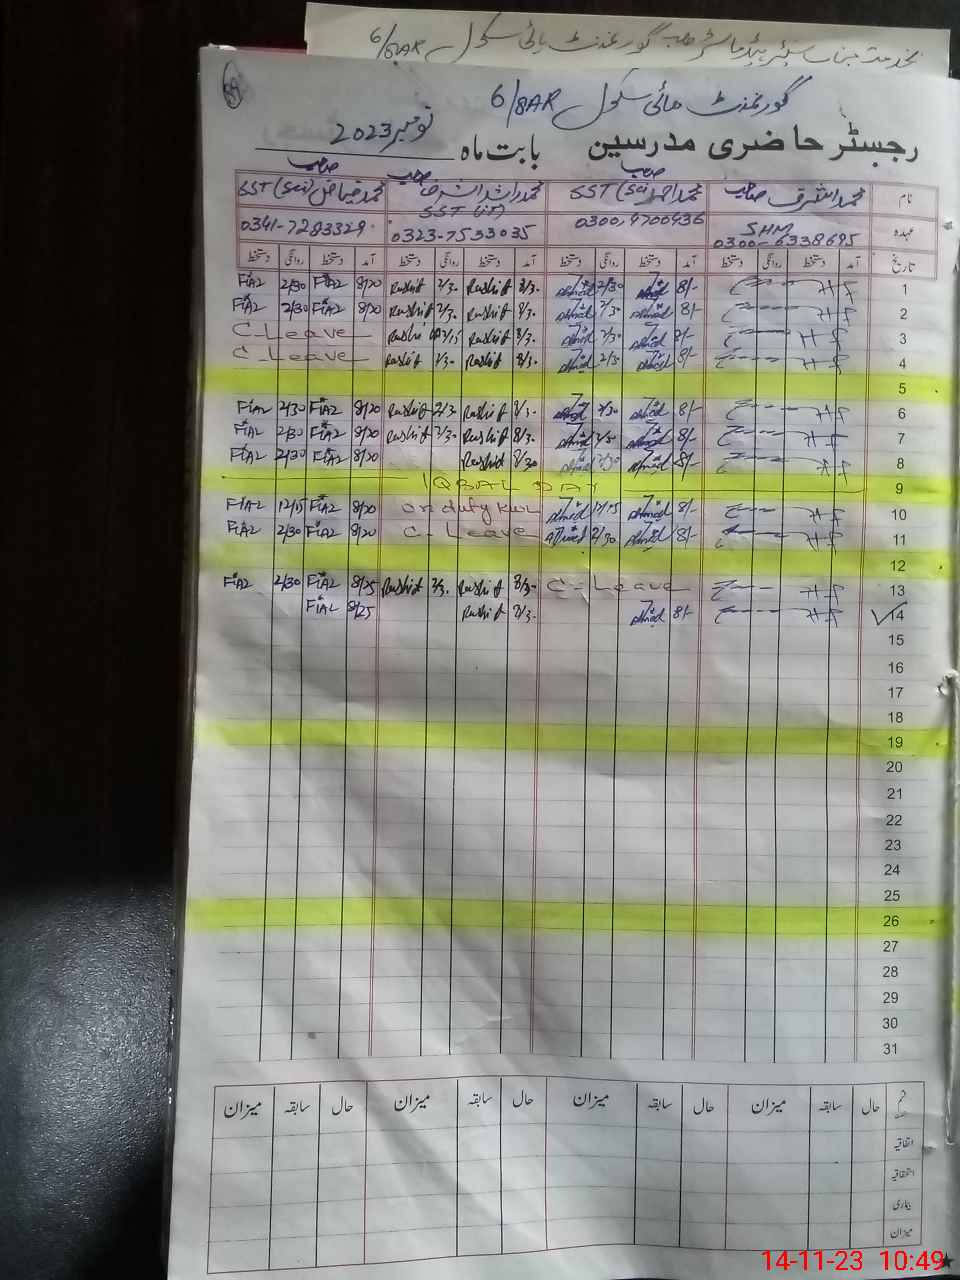 بخدمت جناب سینئر ہیڈ ماسٹر صاحب گورنمنٹ ہائی سکول 6/8AR
گورنمنٹ ہائی سکول 6/8AR
رجسٹر حاضری مدرسین بابت ماہ نومبر 2023
نام محمد اشرف صاحب محمد احمد صاحب SST (Sci) محمد راشد اشرف صاحب SST محمد فیاض صاحب SST (Sci)
عہدہ SHM 0300-6338695 0300,4700436 0323-7533035 0341-7283329
تاریخ آمد دستخط روانگی دستخط آمد دستخط روانگی دستخط آمد دستخط روانگی دستخط آمد دستخط روانگی دستخط
1 8/- Ahmed 2/30 Ahmed 8/3. Rashid 2/3. Rashid 8/20 FiAZ 2/30 FiAZ
2 8/- Ahmed 2/30 Ahmed 8/3. Rashid 2/3. Rashid 8/20 FiAZ 2/30 FiAZ
3 8/- Ahmed 2/30 Ahmed 8/3. Rashid Rashid C-Leave
4 8/- Ahmed 2/30 Ahmed 8/3. Rashid 2/3. Rashid C-Leave
5
6 8/- Ahmed 2/30 Ahmed 8/3. Rashid 2/3. Rashid 8/20 FiAZ 2/30 FiAZ
7 8/- Ahmed Ahmed 8/3. Rashid 2/3. Rashid 8/20 FiAZ 2/30 FiAZ
8 8/- Ahmed Ahmed 8/30 Rashid 8/20 FiAZ 2/30 FiAZ
9 IQBAL DAY
10 8/- Ahmed 12/15 Ahmed on duty 8/20 FiAZ 12/15 FiAZ
11 8/- Ahmed 2/30 Ahmed C-Leave 8/20 FiAZ 2/30 FiAZ
12
13 C-Leave 8/3. Rashid 2/3. Rashid 8/25 FiAZ 2/30 FiAZ
14 8/- Ahmed 8/3. Rashid 8/25 FiAZ
15
16
17
18
19
20
21
22
23
24
25
26
27
28
29
30
31
حال سابقہ میزان حال سابقہ میزان حال سابقہ میزان حال سابقہ میزان
اتفاقیہ
استحقاقیہ
بیماری
میزان
14-11-23 10:49